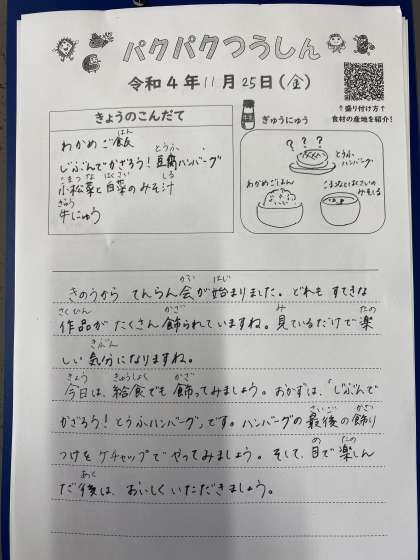 パクパクつうしん
令和4年11月25日(金)
↑盛り付け方↑
食材の産地を紹介!
きょうのこんだて
わかめご飯
はん
じぶんでかざろう!豆腐ハンバーグ
とうふ
小松菜と白菜のみそ汁
こまつな はくさい しる
牛にゅう
ぎゅう
ぎゅうにゅう
???
とうふ
ハンバーグ
わかめごはん
こまつなとはくさいの
みそしる
きのうから てんらん会が始まりました。どれも すてきな
かい はじ
作品が たくさん 飾られていますね。見ているだけで楽
さくひん かざ み たの
しい 気分になりますね。
きぶん
今日は、給食でも 飾ってみましょう。おかずは、「じぶんで
きょう きゅうしょく かざ
かざろう!とうふハンバーグ」です。ハンバーグの最後の飾り
さいご かざ
つけを ケチャップで やってみましょう。そして、目で楽しん
め たの
だ後は、おいしく いただきましょう。
あと